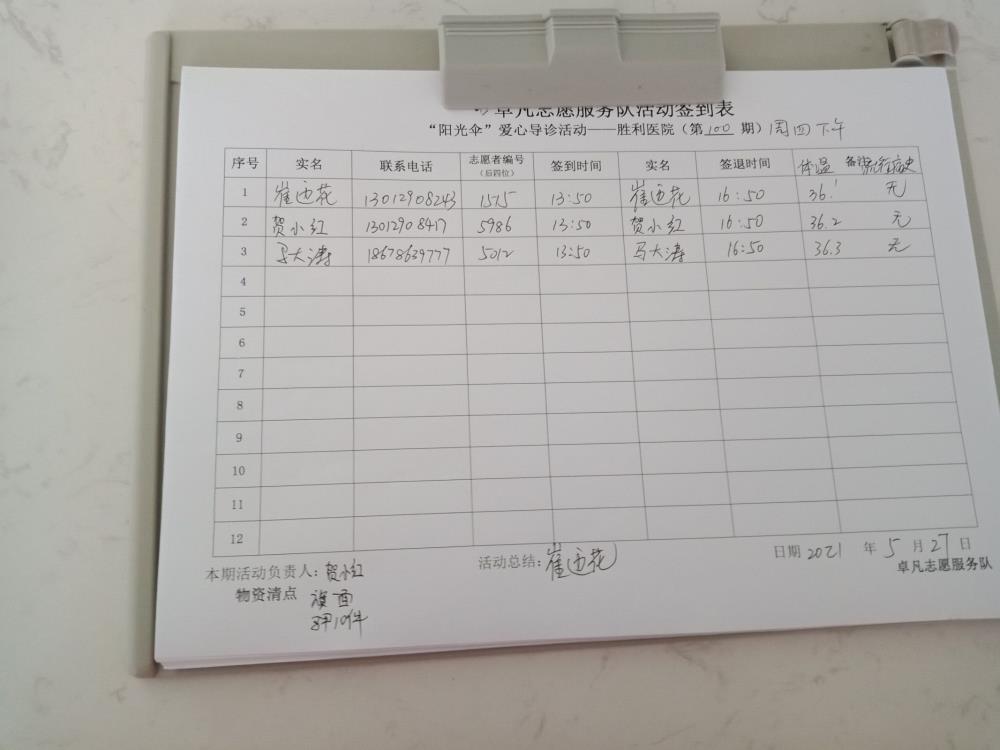 卓凡志愿服务队活动签到表
“阳光伞”爱心导诊活动——胜利医院（第100期）周四下午
序号 实名 联系电话 志愿者编号（后四位） 签到时间 实名 签退时间 体温 备注 流行病史
1 崔迎花 13012908243 1515 13:50 崔迎花 16:50 36.1 无
2 贺小红 13012908417 5986 13:50 贺小红 16:50 36.2 无
3 马大涛 18678639777 5012 13:50 马大涛 16:50 36.3 无
4
5
6
7
8
9
10
11
12
本期活动负责人：贺小红 活动总结：崔迎花 日期 2021 年 5 月 27 日
卓凡志愿服务队
物资清点 旗 面
马甲10件